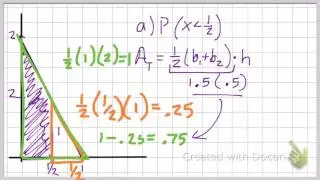 a) P(x<1/2)
1/2(1)(2)=1
A_T = 1/2(b₁+b₂)·h
1.5(.5)
1/2(1/2)(1)=.25
1-.25=.75
2
2
1
1/2
1/2
1
Created with Doceri